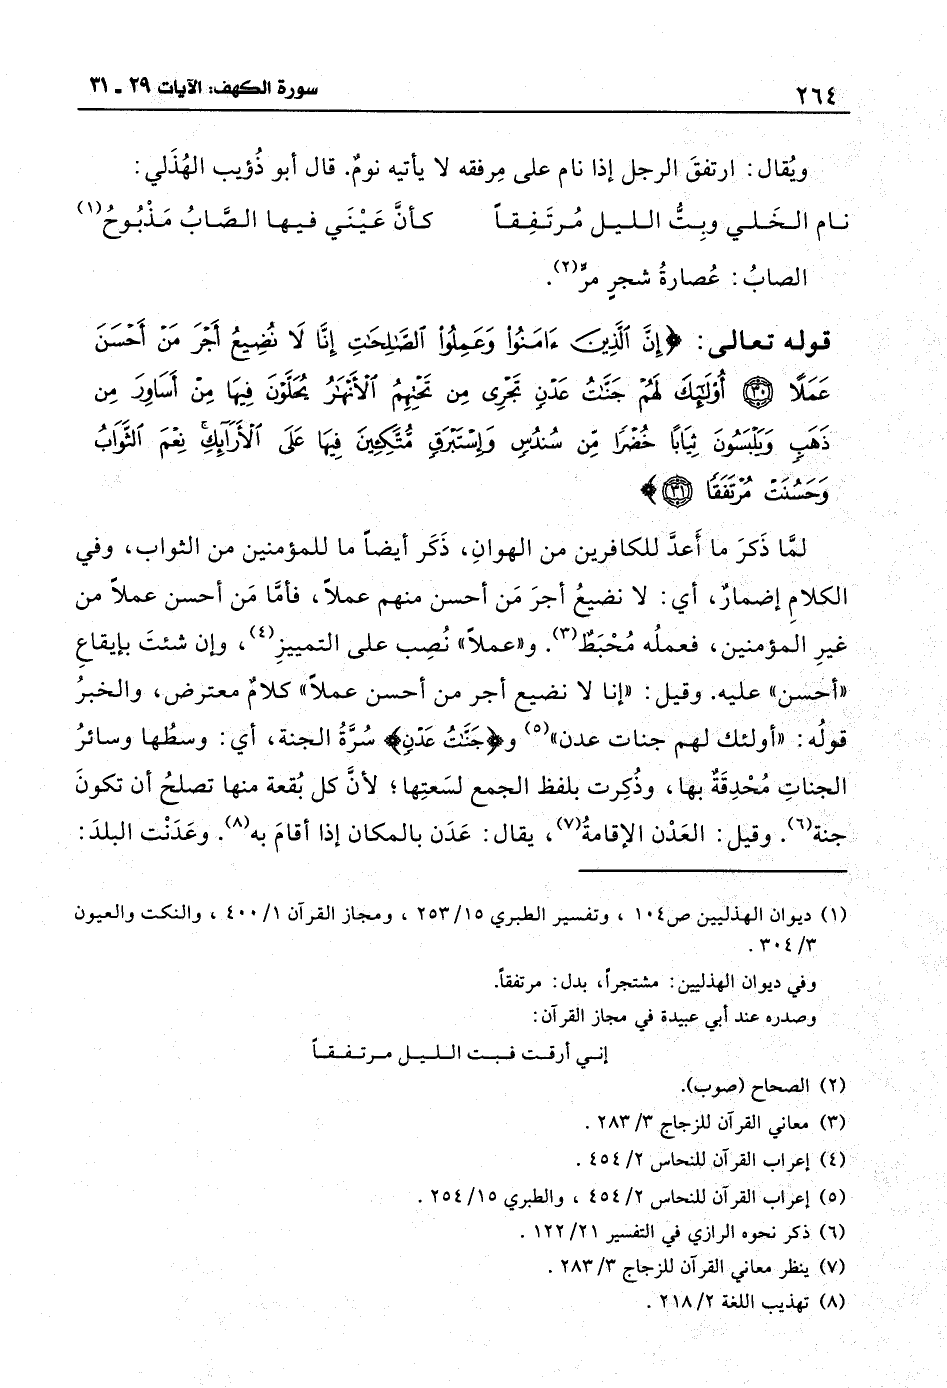 ٢٦٤
سورة الكهف: الآيات ٢٩ ـ ٣١
ويُقال: ارتفقَ الرجل إذا نام على مِرفقه لا يأتيه نومٌ. قال أبو ذُؤيب الهُذَلي:
نام الخَلي وبِتُّ الليل مُرتَفِقاً كأنَّ عَيْنَي فيها الصَّابُ مَذْبُوحُ(١)
الصابُ: عُصارةُ شجرٍ مرٍّ(٢).
قوله تعالى: ﴿إِنَّ ٱلَّذِينَ ءَامَنُوا۟ وَعَمِلُوا۟ ٱلصَّٰلِحَٰتِ إِنَّا لَا نُضِيعُ أَجْرَ مَنْ أَحْسَنَ
عَمَلًا ۝٣٠ أُو۟لَٰٓئِكَ لَهُمْ جَنَّٰتُ عَدْنٍ تَجْرِى مِن تَحْتِهِمُ ٱلْأَنْهَٰرُ يُحَلَّوْنَ فِيهَا مِنْ أَسَاوِرَ مِن
ذَهَبٍ وَيَلْبَسُونَ ثِيَابًا خُضْرًا مِّن سُندُسٍ وَإِسْتَبْرَقٍ مُّتَّكِـِٔينَ فِيهَا عَلَى ٱلْأَرَآئِكِ ۚ نِعْمَ ٱلثَّوَابُ
وَحَسُنَتْ مُرْتَفَقًا ۝٣١﴾
لمَّا ذَكرَ ما أَعدَّ للكافرين من الهوانِ، ذَكَر أيضاً ما للمؤمنين من الثواب، وفي
الكلامِ إضمارٌ، أي: لا نضيعُ أجرَ مَن أحسن منهم عملاً، فأمَّا مَن أحسن عملاً من
غيرِ المؤمنين، فعملُه مُحْبَطٌ(٣). و«عملاً» نُصِب على التمييزِ(٤)، وإن شئتَ بإيقاعِ
«أحسن» عليه. وقيل: «إنا لا نضيع أجر من أحسن عملاً» كلامٌ معترض، والخبرُ
قولُه: «أولئك لهم جنات عدن»(٥) و﴿جَنَّٰتُ عَدْنٍ﴾ سُرَّةُ الجنة، أي: وسطُها وسائرُ
الجناتِ مُحْدِقَةٌ بها، وذُكِرت بلفظ الجمع لسَعتِها؛ لأنَّ كل بُقعة منها تصلحُ أن تكونَ
جنة(٦). وقيل: العَدْن الإقامةُ(٧)، يقال: عَدَن بالمكان إذا أقامَ به(٨). وعَدَنْت البلدَ:
(١) ديوان الهذليين ص١٠٤ ، وتفسير الطبري ١٥/ ٢٥٣ ، ومجاز القرآن ١/ ٤٠٠ ، والنكت والعيون
٣/ ٣٠٤ .
وفي ديوان الهذليين: مشتجراً، بدل: مرتفقاً.
وصدره عند أبي عبيدة في مجاز القرآن:
إني أرقت فبت الليل مرتفقاً
(٢) الصحاح (صوب).
(٣) معاني القرآن للزجاج ٣/ ٢٨٣ .
(٤) إعراب القرآن للنحاس ٢/ ٤٥٤ .
(٥) إعراب القرآن للنحاس ٢/ ٤٥٤ ، والطبري ١٥/ ٢٥٤ .
(٦) ذكر نحوه الرازي في التفسير ٢١/ ١٢٢ .
(٧) ينظر معاني القرآن للزجاج ٣/ ٢٨٣ .
(٨) تهذيب اللغة ٢/ ٢١٨ .